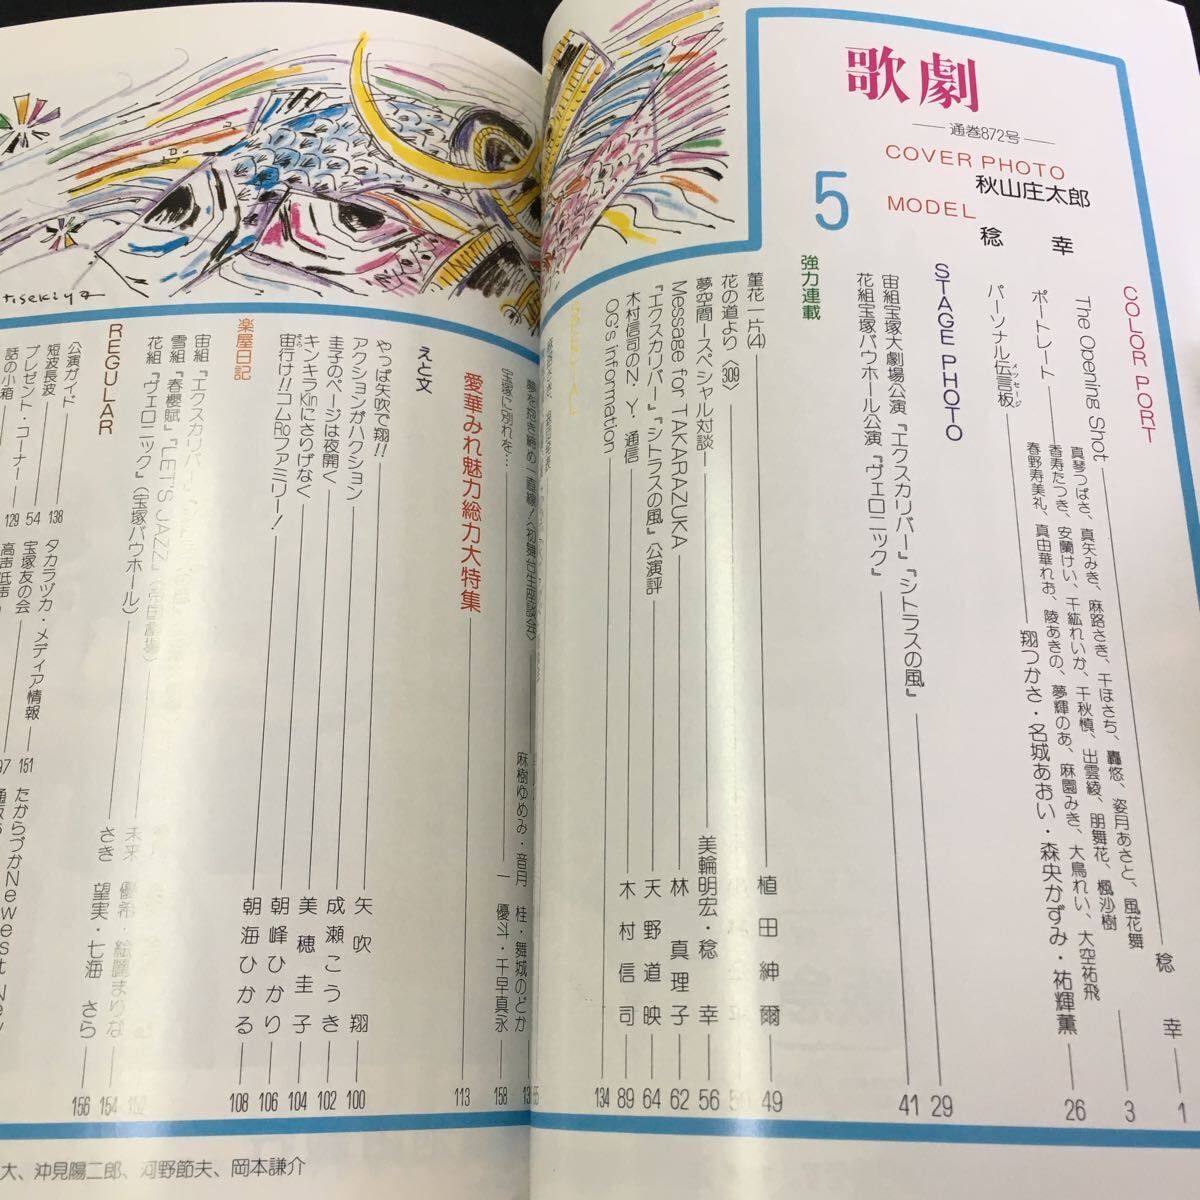 歌劇
通巻872号
COVER PHOTO
秋山庄太郎
5
MODEL
稔 幸
COLOR PORT
The Opening Shot 稔 幸 1
ポートレート 3
真琴つばさ、真矢みき、麻路さき、千ほさち、轟悠、姿月あさと、風花舞
香寿たつき、安蘭けい、千紘れいか、千秋慎、出雲綾、朋舞花、楓沙樹
春野寿美礼、真由華れお、陵あきの、夢輝のあ、麻園みき、大鳥れい、大空祐飛
パーソナル伝言板 翔つかさ・名城あおい・森央かずみ・祐輝薫 26
メッセージ
STAGE PHOTO
宙組宝塚大劇場公演『エクスカリバー』『シトラスの風』 29
花組宝塚バウホール公演『ヴェロニック』 41
強力連載
菫花一片(4) 植田紳爾 49
花の道より〈309〉
夢空間―スペシャル対談 美輪明宏・稔 幸 56
Message for TAKARAZUKA 林 真理子 62
『エクスカリバー』『シトラスの風』公演評 天野道映 64
木村信司のN.Y.通信 木村信司 89
OG's Information 134
夢を抱き締め一直線!〈初舞台生座談会〉
宝塚に別れを… 158
麻樹ゆめみ・音月 桂・舞城のどか
一 優才・千早真永
愛華みれ魅力総力大特集 113
えと文
やっぱ矢吹で翔!! 矢吹 翔 100
アクションがハクション 成瀬こうき 102
圭子のページは夜開く 美穂圭子 104
キンキラKinにさりげなく 朝峰ひかり 106
宙行け!!コムRoファミリー! 朝海ひかる 108
楽屋日記
宙組『エクスカリバー』
雪組『春櫻賦』『LET'S JAZZ』 154
花組『ヴェロニック』(宝塚バウホール) さき 望実・七海 さら 156
REGULAR
公演ガイド 138
短波長波 54
プレゼント・コーナー 129
話の小箱
タカラヅカ・メディア情報 151
宝塚友の会
高声低声
たからづかNewest New
大、沖見陽二郎、河野節夫、岡本謙介